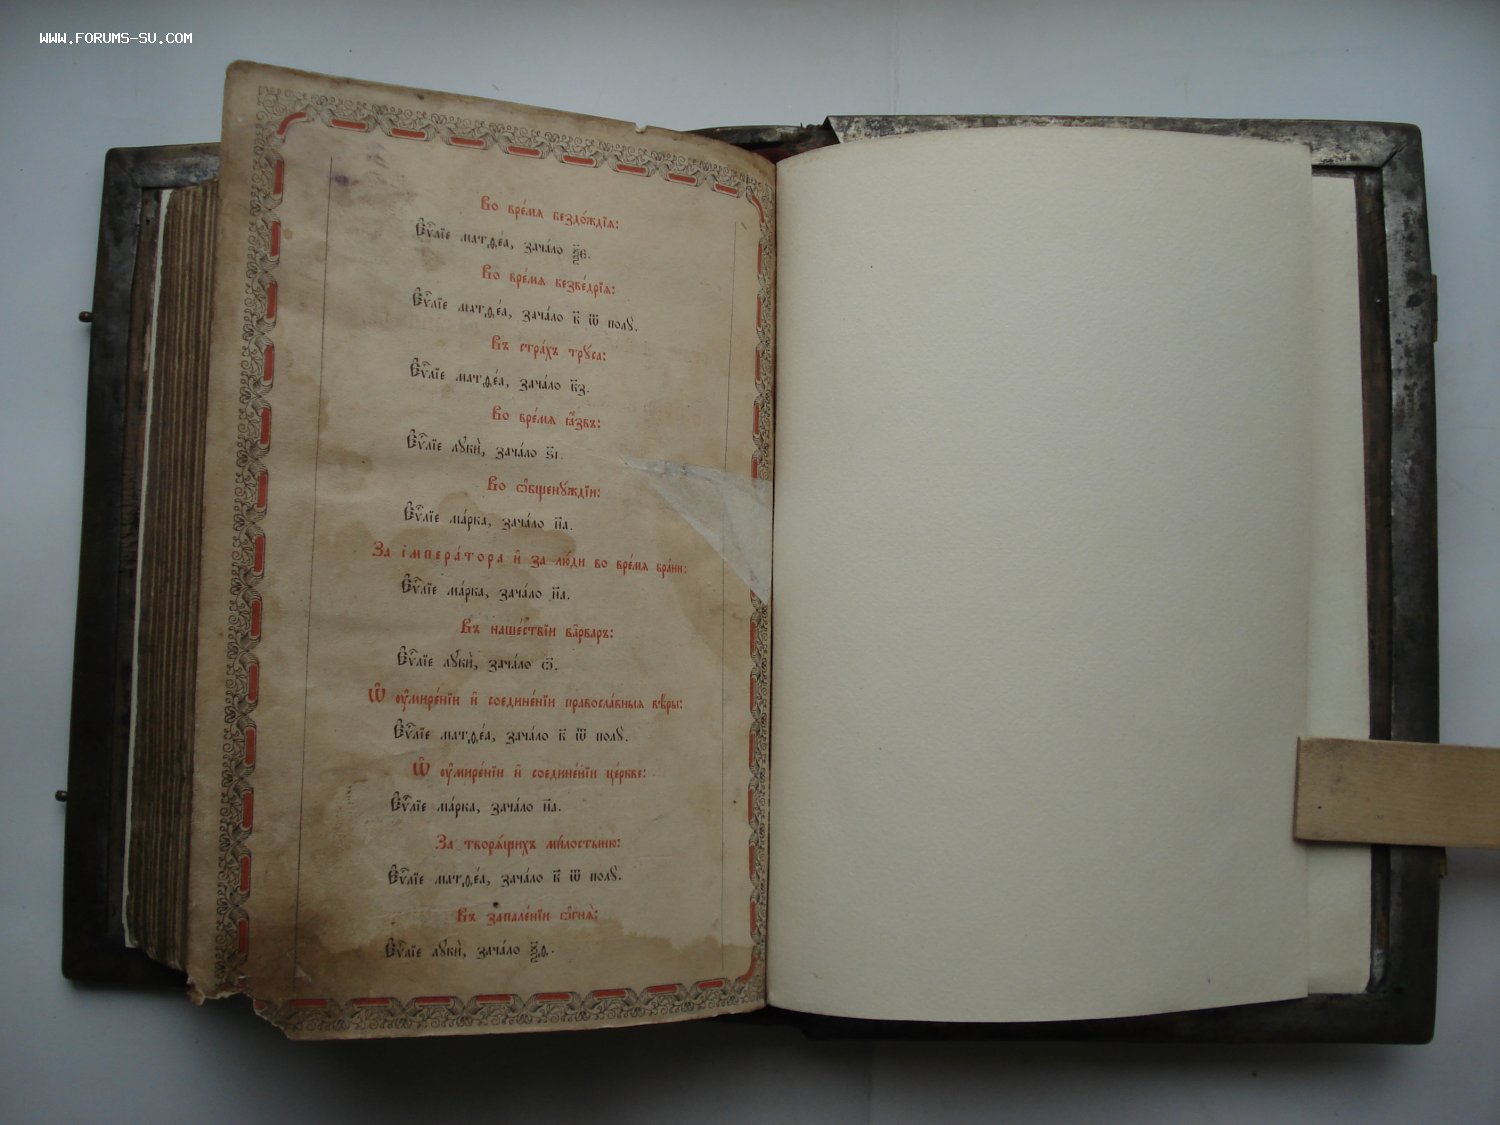 WWW.FORUMS-SU.COM
Во вре́мѧ бездо́ждїѧ:
Є҆ѵⷢ҇лїе матѳе́а, зача́ло
Во вре́мѧ безве́дрїѧ:
Є҆ѵⷢ҇лїе матѳе́а, зача́ло к҃ ѿ полꙋ̀.
Въ стра́хъ трꙋ́са:
Є҆ѵⷢ҇лїе матѳе́а, зача́ло к҃з.
Во вре́мѧ ꙗ҆́звъ:
Є҆ѵⷢ҇лїе лꙋкѝ, зача́ло ѕ҃і.
Во ѻ҆бщенꙋ́ждїи:
Є҆ѵⷢ҇лїе ма́рка, зача́ло н҃а.
За і҆мпера́тора и҆ за лю́ди во вре́мѧ бра́ни:
Є҆ѵⷢ҇лїе ма́рка, зача́ло н҃а.
Въ наше́ствїи ва́рваръ:
Є҆ѵⷢ҇лїе лꙋкѝ, зача́ло
Ѡ҆ ᲂу҆мире́нїи и҆ соедине́нїи правосла́вныѧ вѣ́ры:
Є҆ѵⷢ҇лїе матѳе́а, зача́ло к҃ ѿ полꙋ̀.
Ѡ҆ ᲂу҆мире́нїи и҆ соедине́нїи це́ркве:
Є҆ѵⷢ҇лїе ма́рка, зача́ло н҃а.
За творѧ́щихъ ми́лостыню:
Є҆ѵⷢ҇лїе матѳе́а, зача́ло к҃ ѿ полꙋ̀.
Въ запале́нїи ѻ҆гнѧ̀:
Є҆ѵⷢ҇лїе лꙋкѝ, зача́ло ѯ҃д.